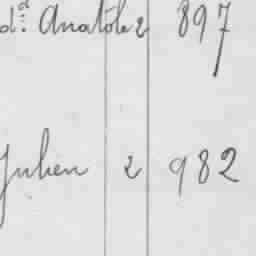 d.d. Anatole 2 897
Julien 2 982